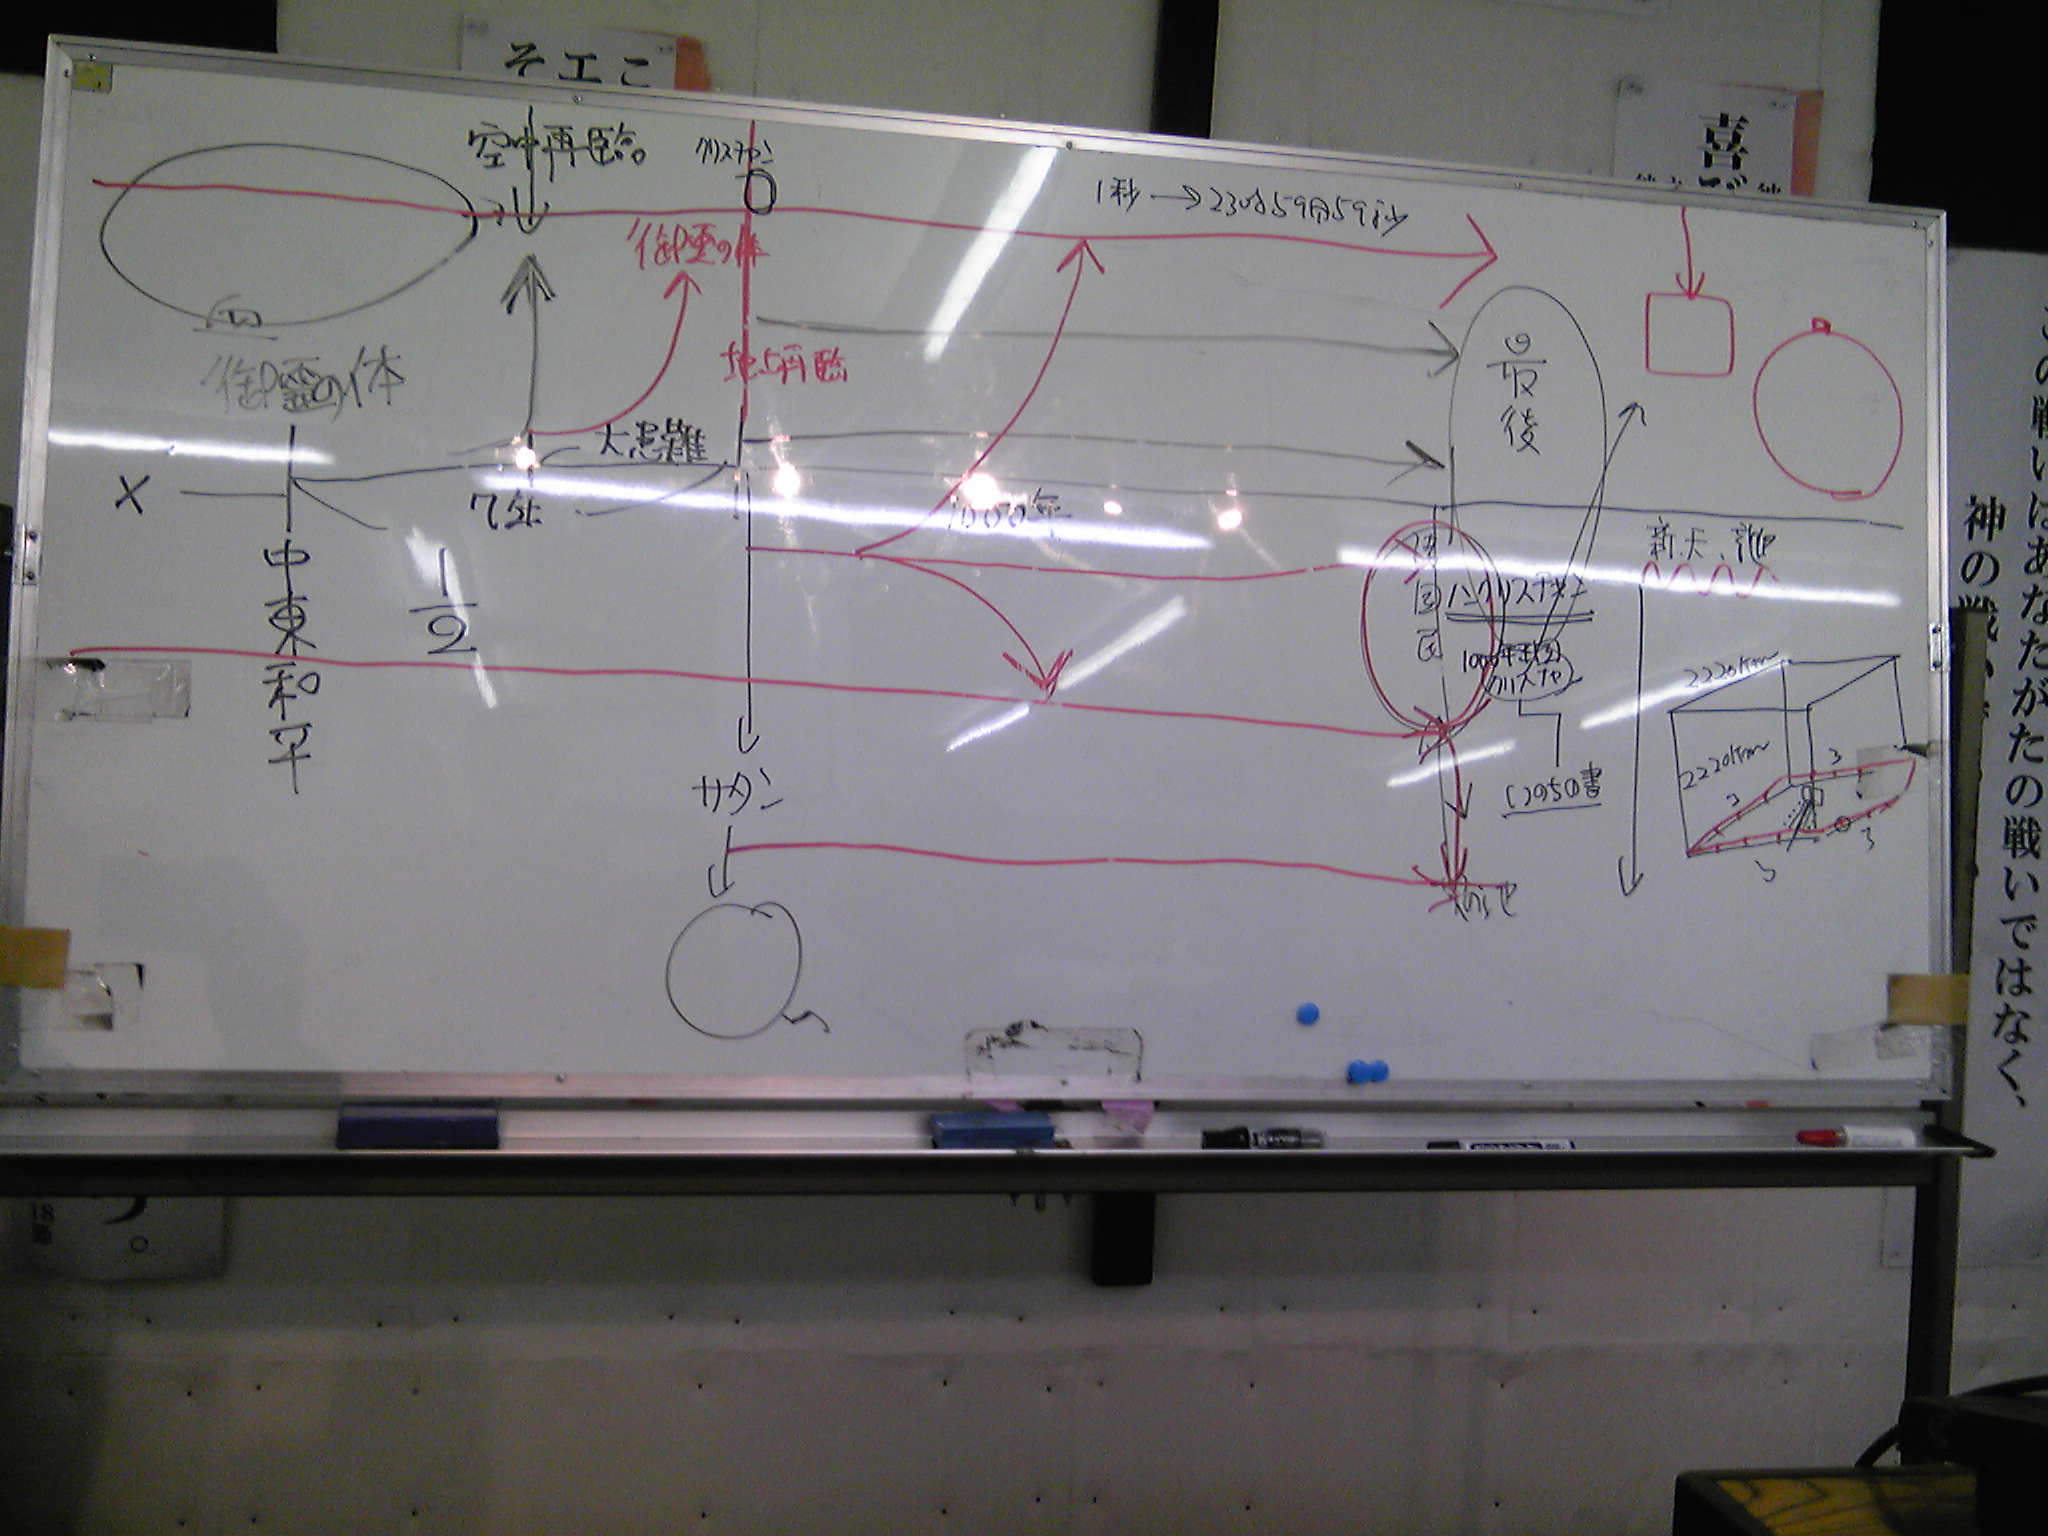 そエこ
喜
空中再臨。
クリスチャン
1秒→23時59分59秒
御霊の体
御霊の体
地上再臨
最後
大患難
X
7年
1000年
新天、新地
中東和平
1/2
ハクリスチャン
1000年王国
クリスチャ
サタン
いのちの書
2220Km
2220Km
3
3
3
3
火の池
この戦いはあなたがたの戦いではなく、
神の戦い
18
う。